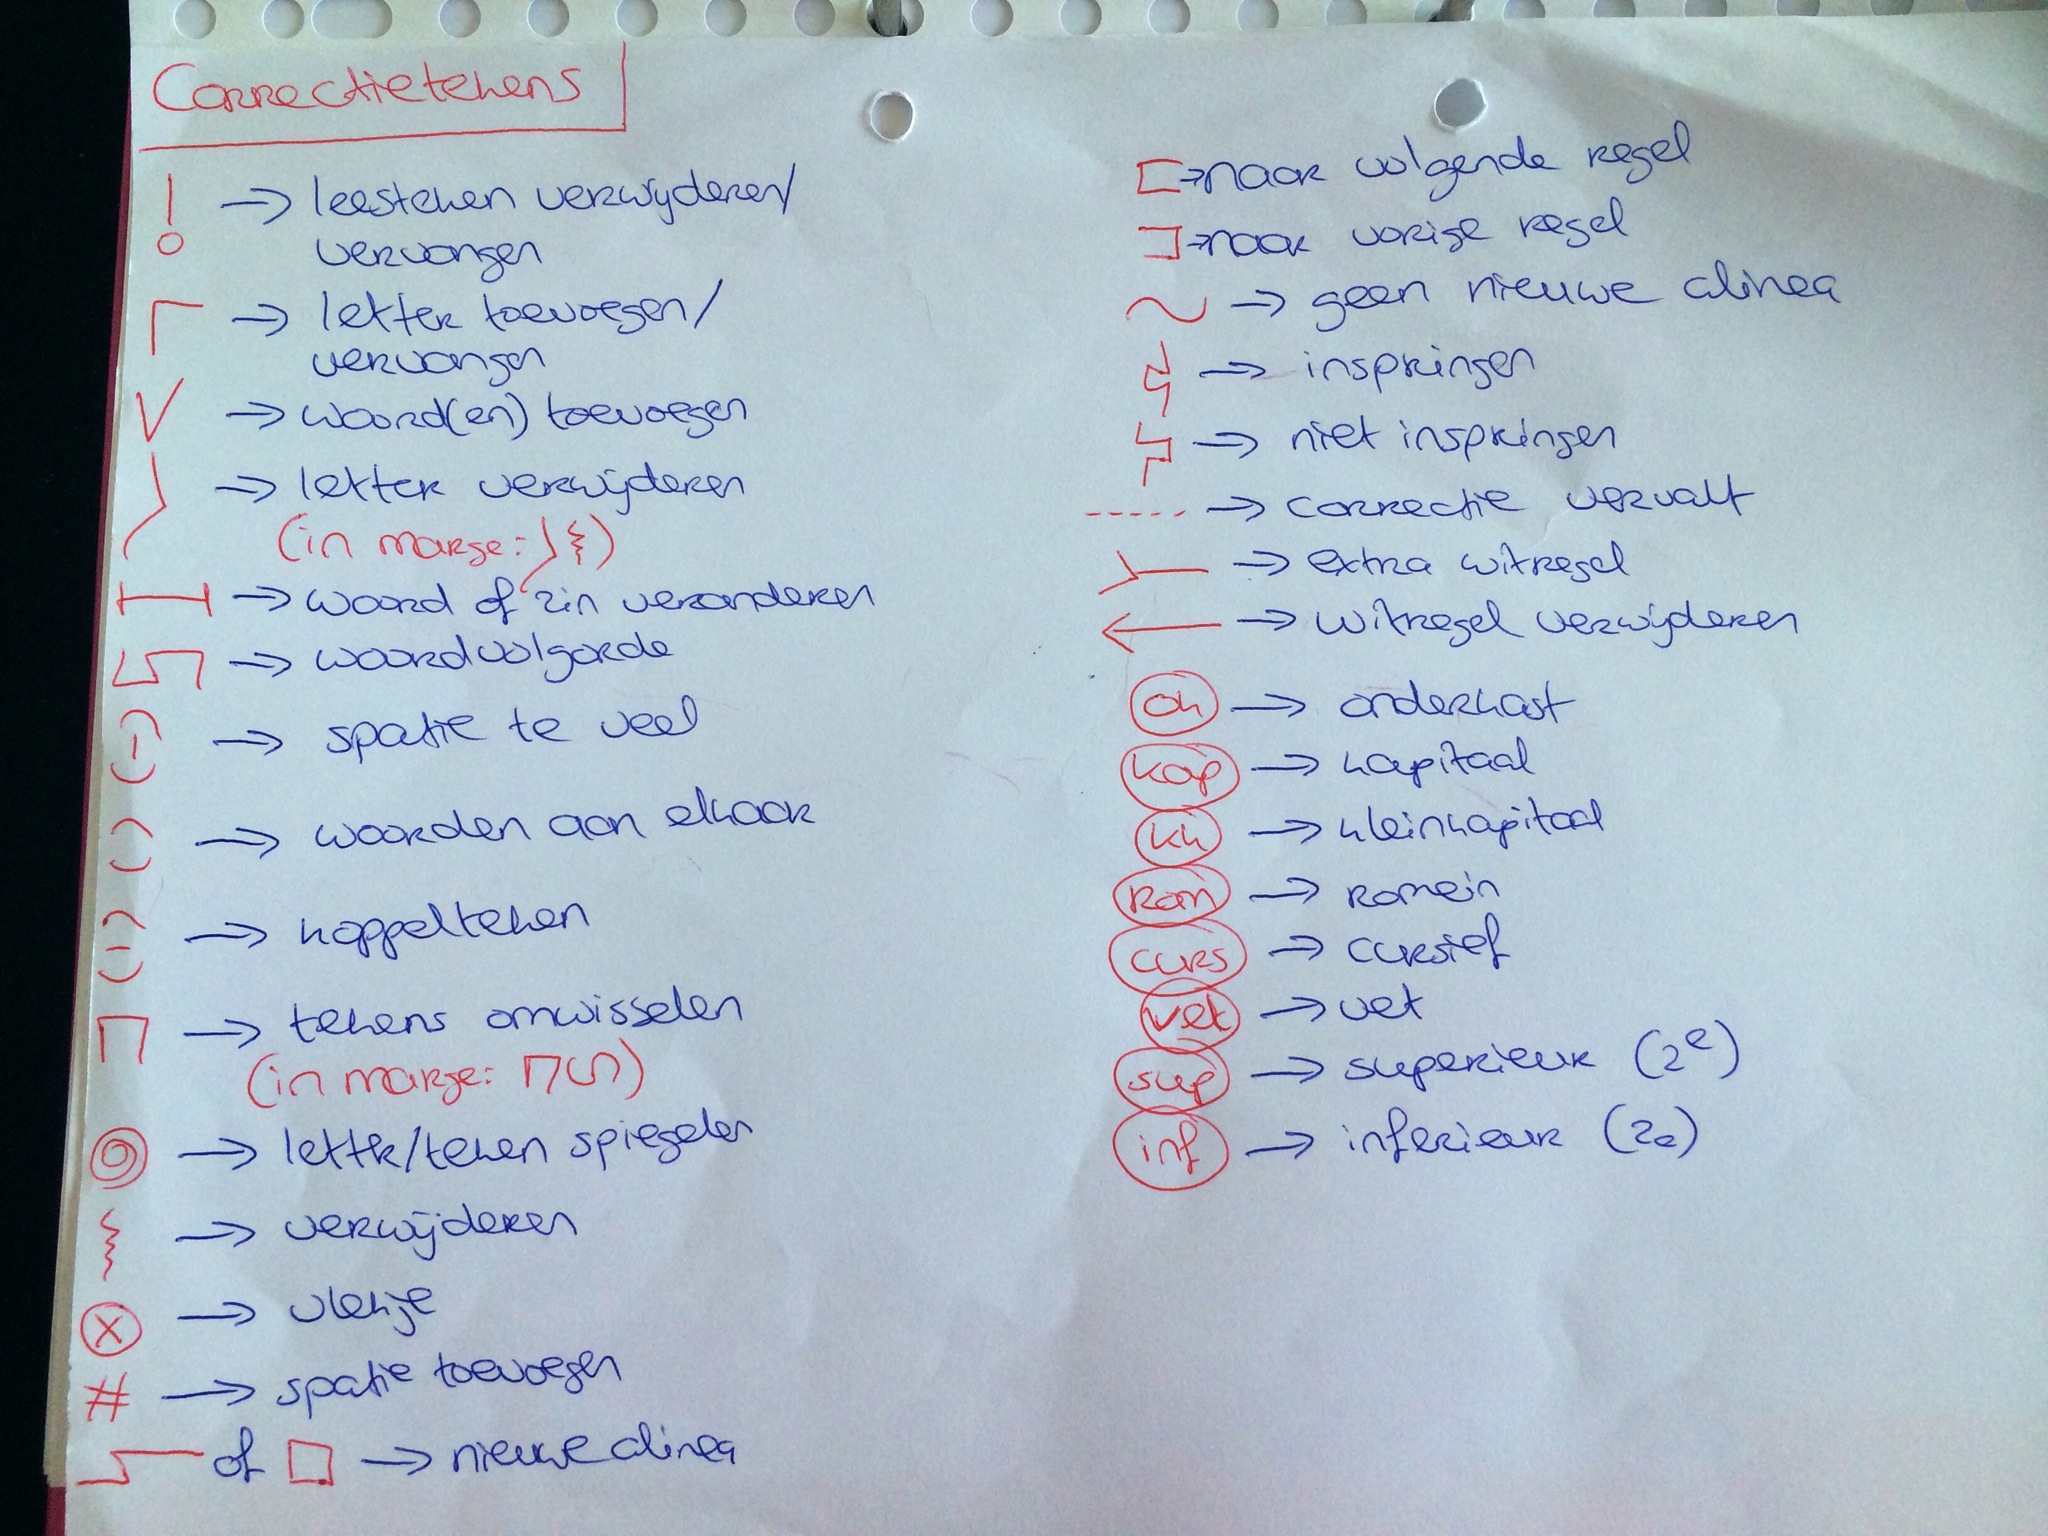 Correctietekens
! → leesteken verwijderen/
vervangen
→ letter toevoegen/
vervangen
→ woord(en) toevoegen
→ letter verwijderen
(in marge:)
→ woord of zin veranderen
→ woordvolgorde
→ spatie te veel
→ woorden aan elkaar
→ koppelteken
→ tekens omwisselen
(in marge:)
→ lettr/teken spiegelen
→ verwijderen
→ vlekje
# → spatie toevoegen
of → nieuwe alinea
→ naar volgende regel
→ naar vorige regel
→ geen nieuwe alinea
→ inspringen
→ niet inspringen
----- → correctie vervalt
→ extra witregel
← → witregel verwijderen
ok → onderkast
kap → kapitaal
kk → kleinkapitaal
rom → romein
curs → cursief
vet → vet
sup → superieur (2ᵉ)
inf → inferieur (2ₑ)